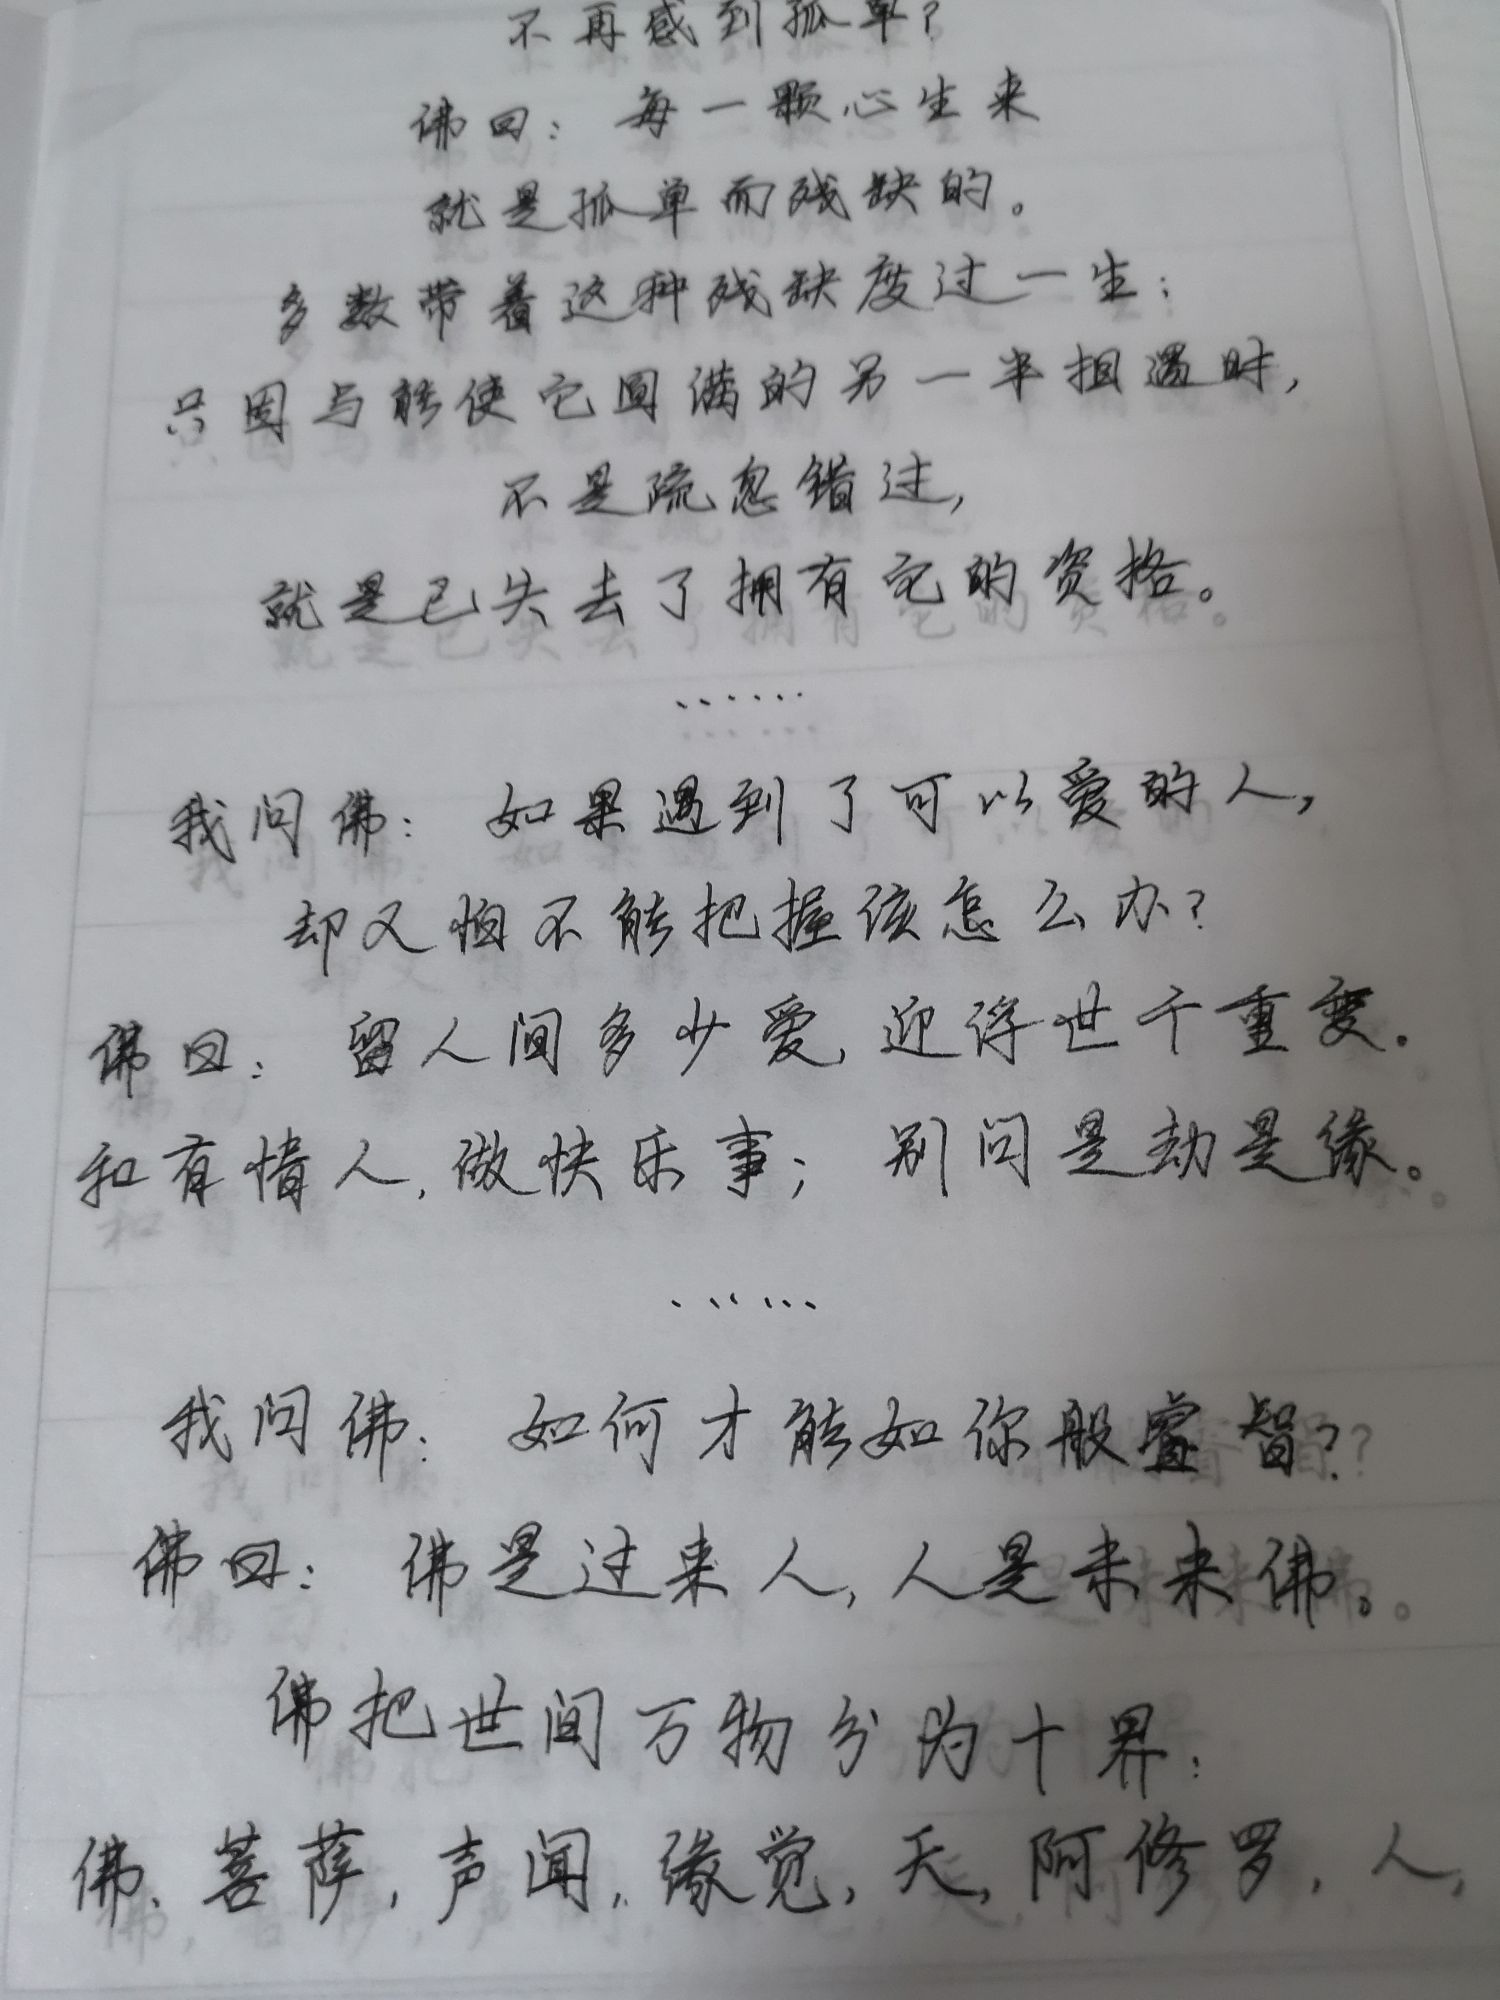 不再感到孤单？
佛曰：每一颗心生来
就是孤单而残缺的。
多数带着这种残缺度过一生；
只因与能使它圆满的另一半相遇时，
不是疏忽错过，
就是已失去了拥有它的资格。
······
我问佛：如果遇到了可以爱的人，
却又怕不能把握该怎么办？
佛曰：留人间多少爱，迎浮世千重变。
和有情人，做快乐事；别问是劫是缘。
······
我问佛：如何才能如你般睿智？
佛曰：佛是过来人，人是未来佛。
佛把世间万物分为十界：
佛、菩萨，声闻，缘觉，天，阿修罗，人，